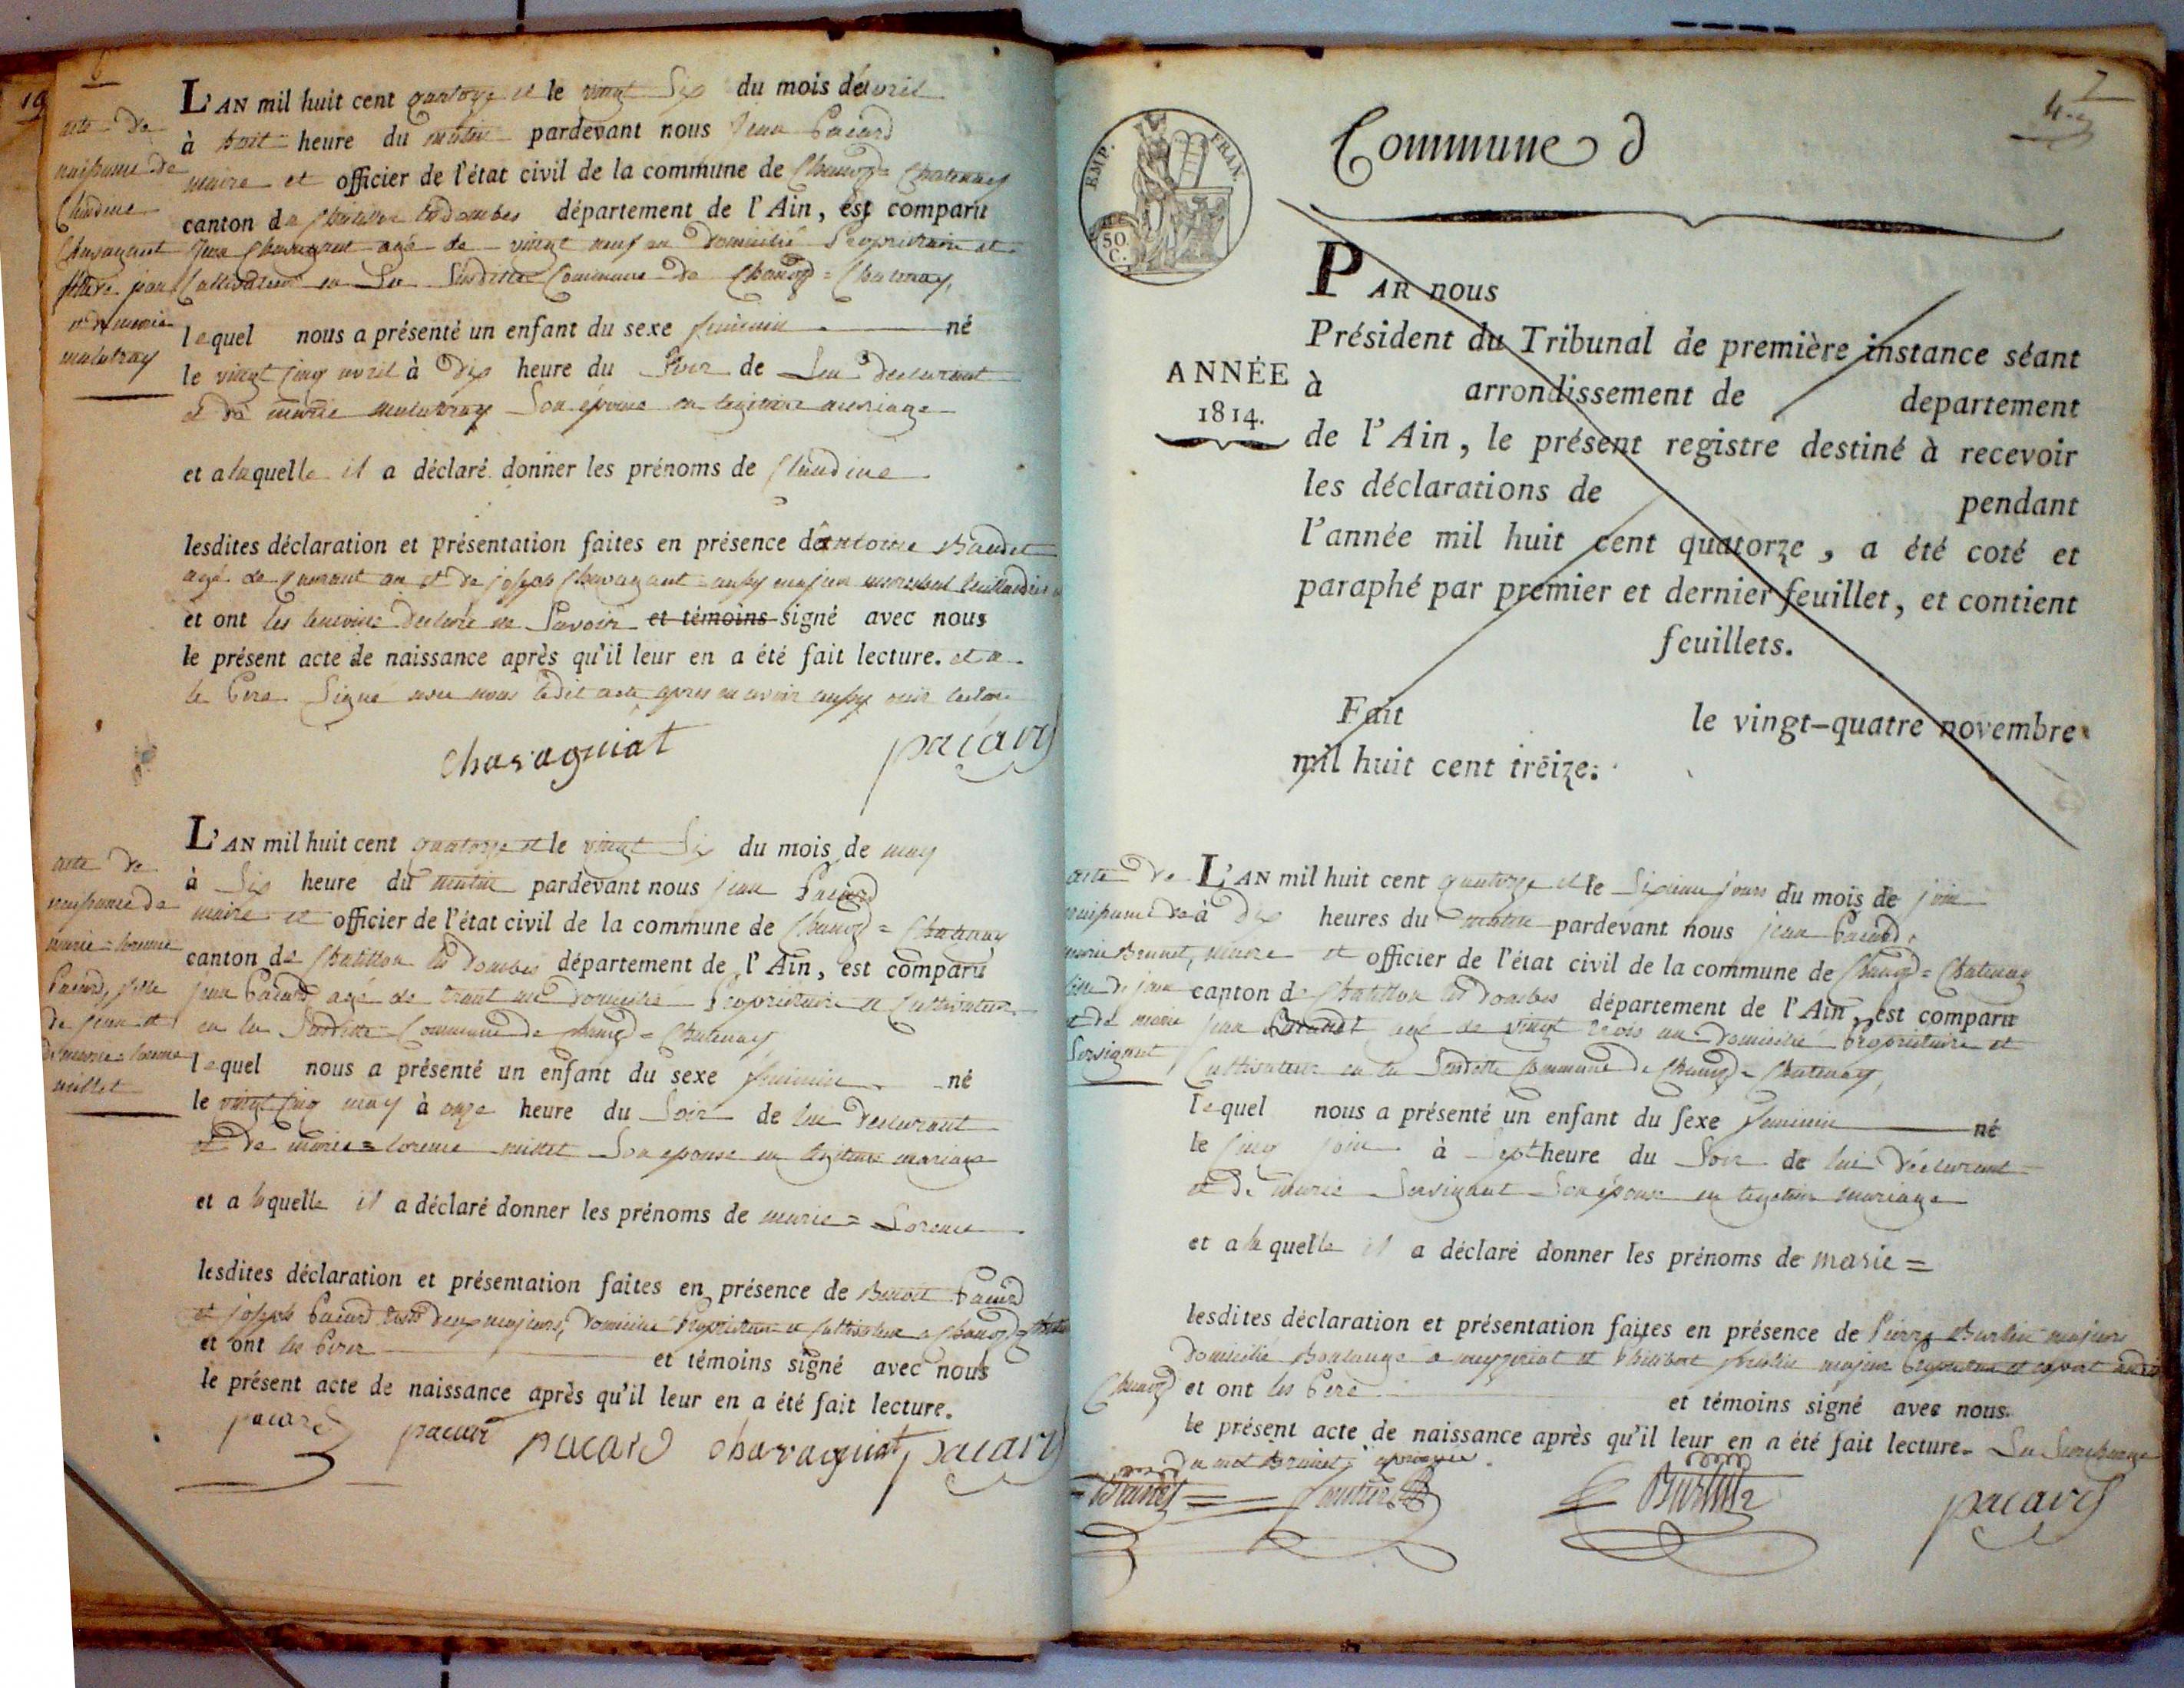 6
acte de
naissance de
Claudine
Chavagnat
fille de jean
et de marie
malatray
L'AN mil huit cent quatorze et le vingt Six du mois d'avril
à huit heure du matin pardevant nous Jean Pacard
maire et officier de l'état civil de la commune de Chanoz = Chatenay
canton de Chatillon les dombes département de l'Ain, est comparu
Jean Chavagnat agé de vingt neuf an domicilié Proprietaire et
Cultivateur en la Susditte Commune de Chanoz = Chatenay,
lequel nous a présenté un enfant du sexe feminin né
le vingt cinq avril à dix heure du Soir de Lui declarant
et de marie malatray Son épouse en legitime mariage
et a laquelle il a déclaré donner les prénoms de Claudine
lesdites déclaration et présentation faites en présence d'antoine Baudet
agé de quarant an et de joseph Chavagnat aussy majeur
et ont les temoins declaré ne Savoir et témoins signé avec nous
le présent acte de naissance après qu'il leur en a été fait lecture. et a
le Pere Signé avec nous ledit acte apres en avoir aussy ouir lecture
chavagniat pacard
acte de
naissance de
marie = lorence
Pacard, fille
de jean et
de marie = lorence
millet
L'AN mil huit cent quatorze et le vingt Six du mois de may
à Six heure du matin pardevant nous jean Pacard
maire et officier de l'état civil de la commune de Chanoz = Chatenay
canton de Chatillon les Dombes département de l'Ain, est comparu
jean Pacard agé de trent an domicilié Proprietaire et Cultivateur
en la Susditte Commune de Chanoz = Chatenay
lequel nous a présenté un enfant du sexe feminin né
le vingt cinq may à onze heure du Soir de lui declarant
et de marie = lorence millet Son epouse en legitime mariage
et a laquelle il a déclaré donner les prénoms de marie = Lorence
lesdites déclaration et présentation faites en présence de Benoit Pacard
et joseph Pacard tous deux majeurs, Domicilié Proprietaire et Cultivateur a Chanoz = Chatenay
et ont les Peres et témoins signé avec nous
le présent acte de naissance après qu'il leur en a été fait lecture.
pacard pacard pacard chavagniat pacard
7
4
Commune d
EMP. FRAN.
50
C.
ANNÉE
1814.
PAR nous
Président du Tribunal de première instance séant
à arrondissement de departement
de l'Ain, le présent registre destiné à recevoir
les déclarations de pendant
l'année mil huit cent quatorze, a été coté et
paraphé par premier et dernier feuillet, et contient
feuillets.
Fait le vingt-quatre novembre
mil huit cent treize.
acte de
naissance de
marie Brunet,
fille de jean
et de marie
Servignat
L'AN mil huit cent quatorze et le Sixieme jours du mois de join
à dix heures du matin pardevant nous jean Pacard,
maire et officier de l'état civil de la commune de Chanoz = Chatenay
canton de Chatillon les dombes département de l'Ain, est comparu
jean Brunet agé de vingt trois an domicilié Proprietaire et
Cultivateur en la Susditte Commune de Chanoz = Chatenay,
lequel nous a présenté un enfant du sexe feminin né
le cinq join à Sept heure du Soir de lui déclarant
et de marie Servignat Son épouse en legitime mariage
et a la quelle il a déclaré donner les prénoms de marie =
lesdites déclaration et présentation faites en présence de Pierre Burtin majeur
domicilié Boulanger a mezeriat et Philibert majeur
Chanoz et ont les Pere et témoins signé avec nous
le présent acte de naissance après qu'il leur en a été fait lecture. La Surcharge
du mot Brunet approuvée.
Brunet Burtin pacard